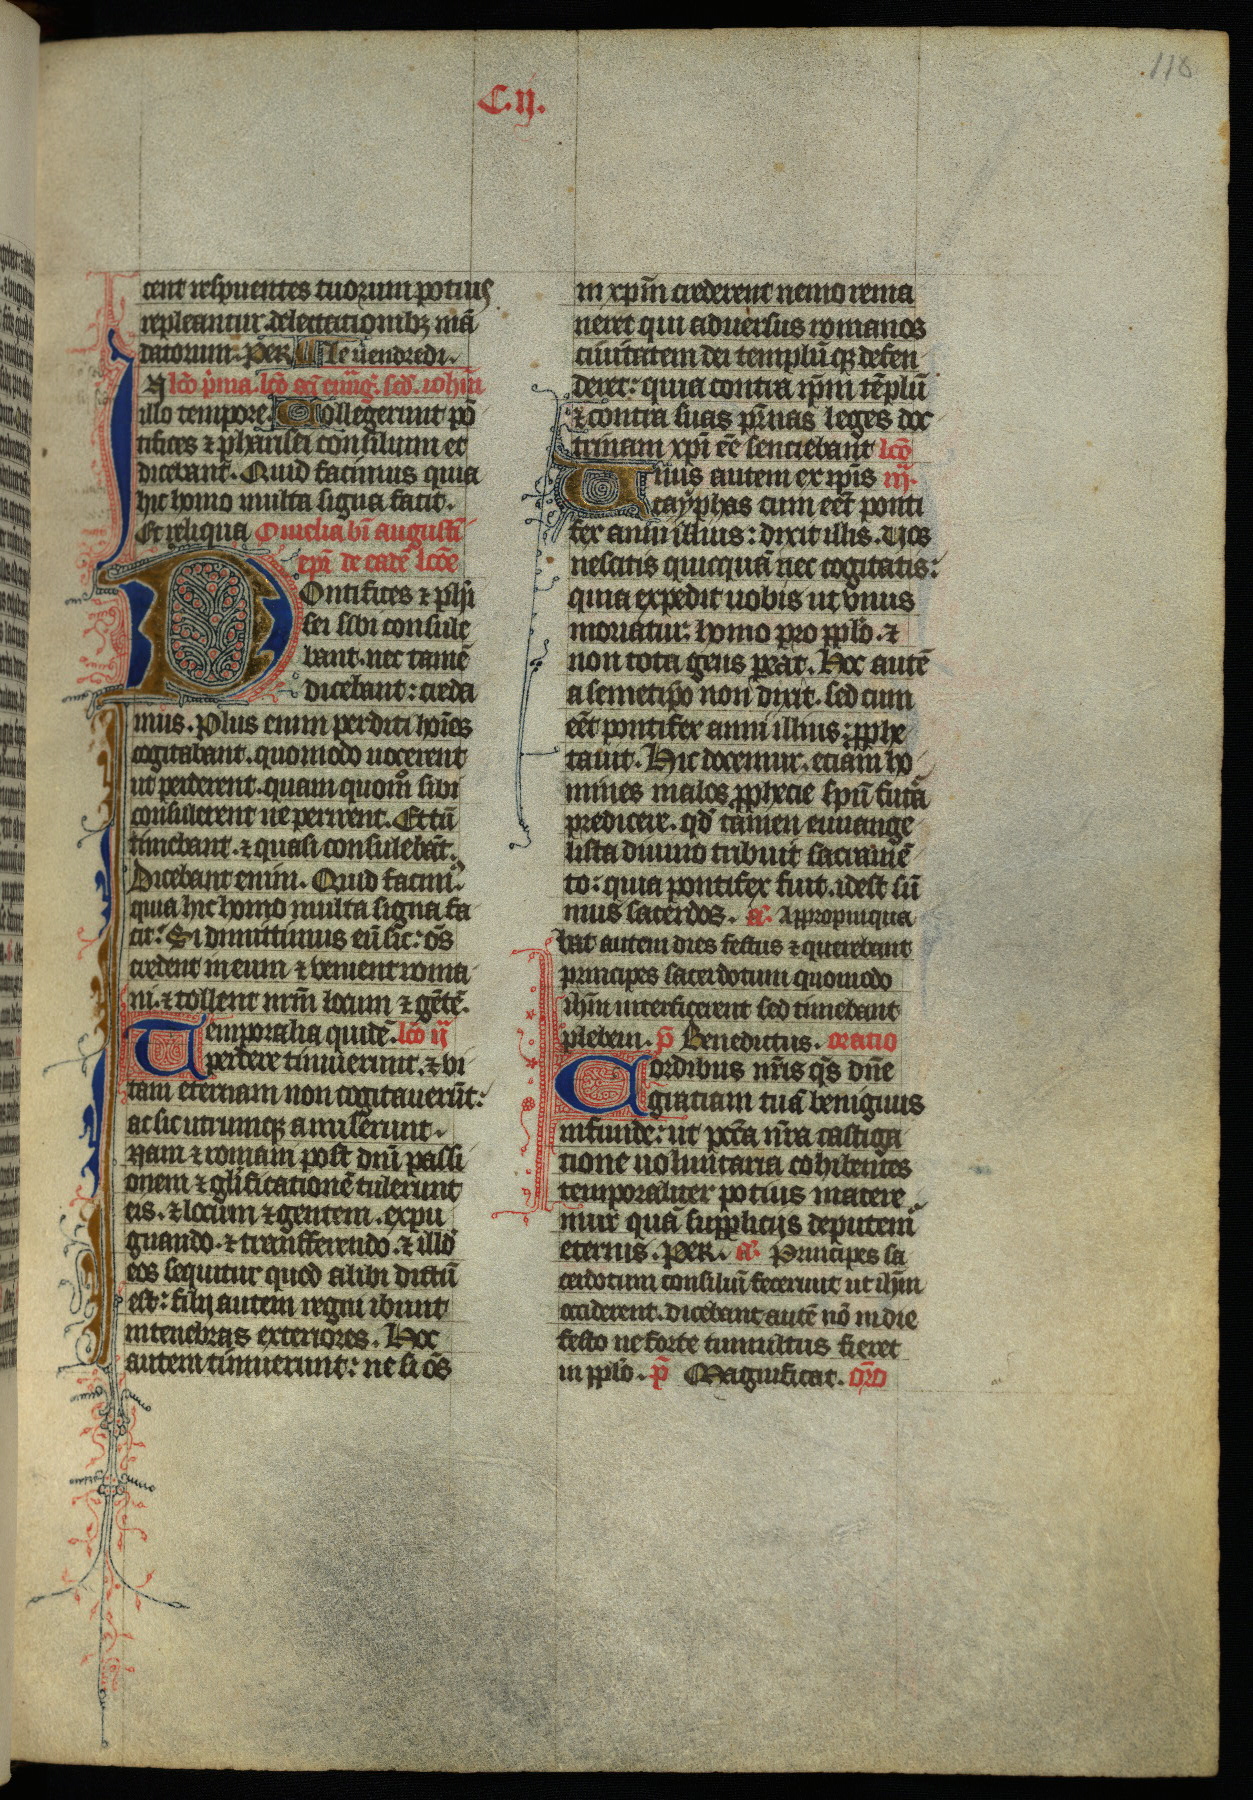 118
C.ij.
cent respuentes tuorum potius
repleantur delectationibꝫ mã
datorum. PER Le uendredi.
N lcõ p̃ma. lcõ scĩ euuãg. scd̃. iohãñ
illo tempore. Collegerunt põ
tifices ⁊ pharisei consilium et
dicebant. Quid facimus quia
hic homo multa signa facit.
Et reliqua Omelia bĩ augustĩ
epĩ de eadẽ lcõe
Pontifices ⁊ phi
sei sibi consule
bant. nec tamẽ
dicebant: creda
mus. Plus enim perditi hoĩes
cogitabant. quomodo nocerent
ut perderent. quam quom̊ sibi
consulerent ne perirent. Et tũ
timebant. ⁊ quasi consulebãt.
Dicebant enim. Quid facimꝰ.
quia hic homo multa signa fa
cit? Si dimittimus eũ sic: oẽs
credent in eum ⁊ venient roma
ni. ⁊ tollent nrm̃ locum ⁊ gẽtẽ.
Temporalia quidẽ. lcõ ij
perdere timuerunt. ⁊ vi
tam eternam non cogitauerũt:
ac sic utrumqꝫ amiserunt.
Nam ⁊ romani post dnĩ passi
onem ⁊ glificationẽ tulerunt
eis. ⁊ locum ⁊ gentem. expu
gnando. ⁊ transferendo. ⁊ illd̃
eos sequitur quod alibi dictũ
est: filij autem regni ibunt
in tenebras exteriores. Hoc
autem timuerunt: ne si oẽs
in xpm̃ crederent nemo rema
neret qui aduersus romanos
ciuitatem dei templũ qꝫ defen
deret: quia contra ip̃m tẽplũ
⁊ contra suas pr̃nas leges doc
trinam xpĩ eẽ sentiebant lcõ
Unus autem ex ip̃is iij.
cayphas cum eẽt ponti
fex anni illius: dixit illis. Uos
nescitis quicquã nec cogitatis:
quia expedit uobis ut vnus
moriatur homo pro pplo. ⁊
non tota gens peat. Hoc autẽ
a semetipso non dixit. sed cum
eẽt pontifex anni illius: pphe
tauit. Hic docemur. etiam ho
mines malos pphecie spũ futã
predicere. qd̃ tamen euuange
lista diuino tribuit sacramẽ
to: quia pontifex fuit. idest sũ
mus sacerdos. a᷎. Appropinqua
bat autem dies festus ⁊ querebant
principes sacerdotum quomodo
ihm̃ interficerent sed timebant
plebem. p̃ Benedictus. oratio
Cordibus nr̃is qs̃ dñe
gratiam tuã benignus
infunde: ut pccã nr̃a castiga
tione uoluntaria cohibentes
temporaliter potius macere
mur quã supplicijs deputemꝰ
eternis. PER. a᷎. Principes sa
cerdotum consiliũ fecerunt ut ihm̃
occiderent. dicebant autẽ nõ in die
festo ne forte tumultus fieret
in pplo. p̃ Magnificat. or̃o